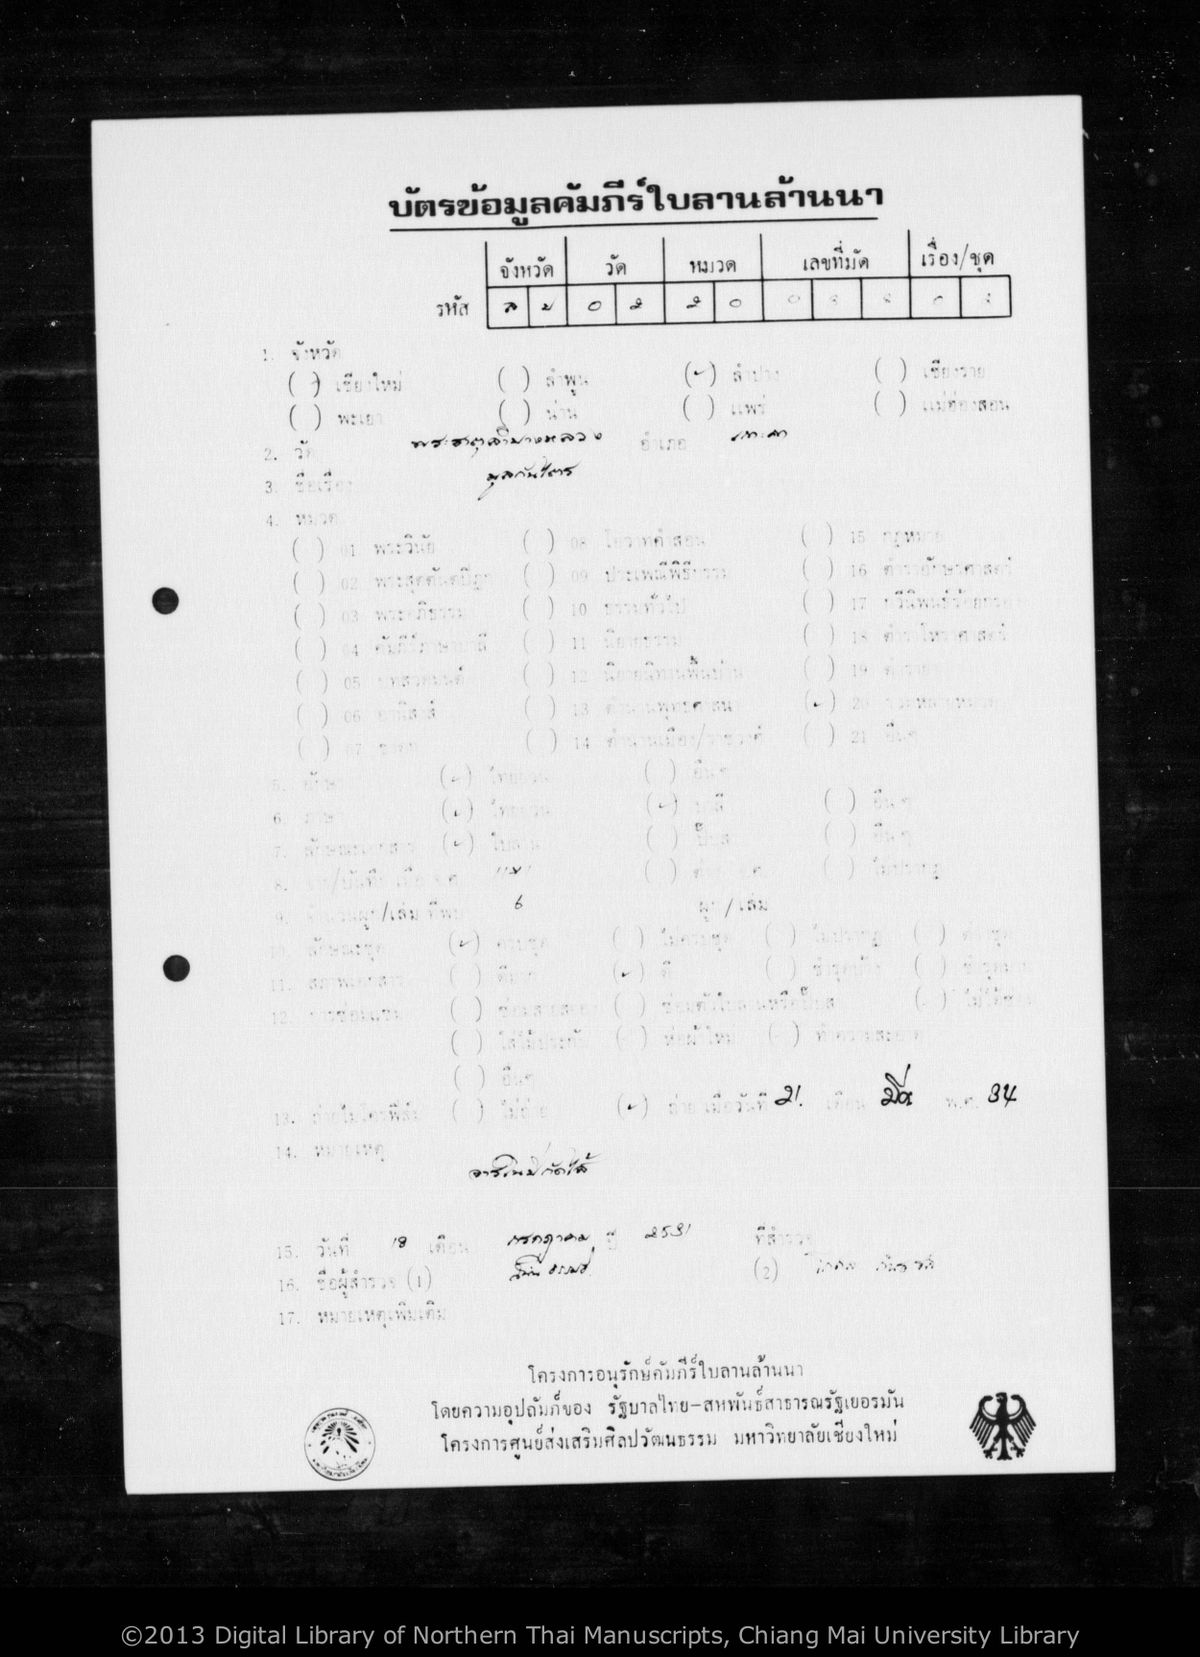 บัตรข้อมูลคัมภีร์ใบลานล้านนา
จังหวัด วัด หมวด เลขที่มัด เรื่อง/ชุด
รหัส
1. จังหวัด
( ) เชียงใหม่ ( ) ลำพูน (✓) ลำปาง ( ) เชียงราย
( ) พะเยา ( ) น่าน ( ) แพร่ ( ) แม่ฮ่องสอน
2. วัด พระธาตุลำปางหลวง อำเภอ เกาะคา
3. ชื่อเรื่อง มูลกันไตร
4. หมวด
( ) 01 พระวินัย ( ) 08 โอวาทคำสอน ( ) 15 กฎหมาย
( ) 02 พระสุตตันตปิฎก ( ) 09 ประเพณีพิธีกรรม ( ) 16 ตำราอักษรศาสตร์
( ) 03 พระอภิธรรม ( ) 10 ธรรมทั่วไป ( ) 17 กวีนิพนธ์ร้อยกรอง
( ) 04 คัมภีร์ภาษาบาลี ( ) 11 นิยายธรรม ( ) 18 ตำราโหราศาสตร์
( ) 05 บทสวดมนต์ ( ) 12 นิยายนิทานพื้นบ้าน ( ) 19 ตำรายา
( ) 06 อานิสงส์ ( ) 13 ตำนานพุทธศาสนา (✓) 20 รวมหลายหมวด
( ) 07 ชาดก ( ) 14 ตำนานเมือง/ราชวงศ์ ( ) 21 อื่นๆ
5. อักษร (✓) ไทยยวน ( ) อื่นๆ
6. ภาษา (✓) ไทยยวน (✓) บาลี ( ) อื่นๆ
7. ลักษณะเอกสาร (✓) ใบลาน ( ) พับสา ( ) อื่นๆ
8. จาร/บันทึก เมื่อ จ.ศ. ( ) ( ) ไม่ปรากฏ
9. จำนวนผูก/เล่ม ที่พบ 6 ผูก/เล่ม
10. ลักษณะชุด (✓) ครบชุด ( ) ไม่ครบชุด ( ) ไม่ปรากฏ ( )
11. สภาพเอกสาร ( ) ดีมาก (✓) ดี ( ) ชำรุดบ้าง ( ) ชำรุดมาก
12. การซ่อมแซม ( ) ซ่อมสายสยอง ( ) ซ่อมตัวใบลานหรือพับสา ( ) ไม่ได้ซ่อม
( ) ใส่ไม้ประกับ ( ) ห่อผ้าใหม่ ( ) ทำความสะอาด
( ) อื่นๆ
13. ถ่ายไมโครฟิล์ม ( ) ไม่ถ่าย (✓) ถ่าย เมื่อวันที่ 21. เดือน มีค พ.ศ. 34
14. หมายเหตุ
15. วันที่ 18 เดือน กรกฎาคม ปี ๒๕๓๑ ที่สำรวจ
16. ชื่อผู้สำรวจ (1) (2)
17. หมายเหตุเพิ่มเติม
โครงการอนุรักษ์คัมภีร์ใบลานล้านนา
โดยความอุปถัมภ์ของ รัฐบาลไทย-สหพันธ์สาธารณรัฐเยอรมัน
โครงการศูนย์ส่งเสริมศิลปวัฒนธรรม มหาวิทยาลัยเชียงใหม่
©2013 Digital Library of Northern Thai Manuscripts, Chiang Mai University Library